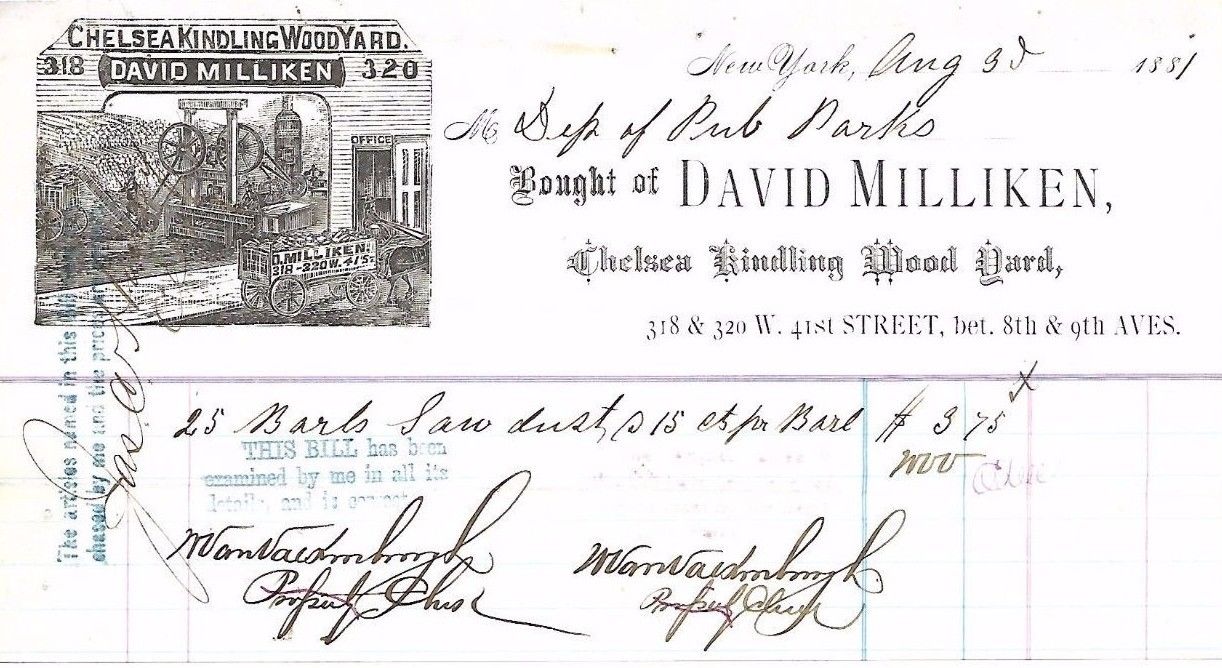 CHELSEA KINDLING WOOD YARD.
318 DAVID MILLIKEN 320
OFFICE
D. MILLIKEN.
318-320 W. 41 ST
New York, Aug 3d 1881
M Dep of Pub Parks
Bought of DAVID MILLIKEN,
Chelsea Kindling Wood Yard,
318 & 320 W. 41st STREET, bet. 8th & 9th AVES.
25 Barls Saw dust, @ 15 cts pr Barl $ 3 75
THIS BILL has been
examined by me in all its
details, and is correct
The articles named in this
chased by me and the price
Jas. A.